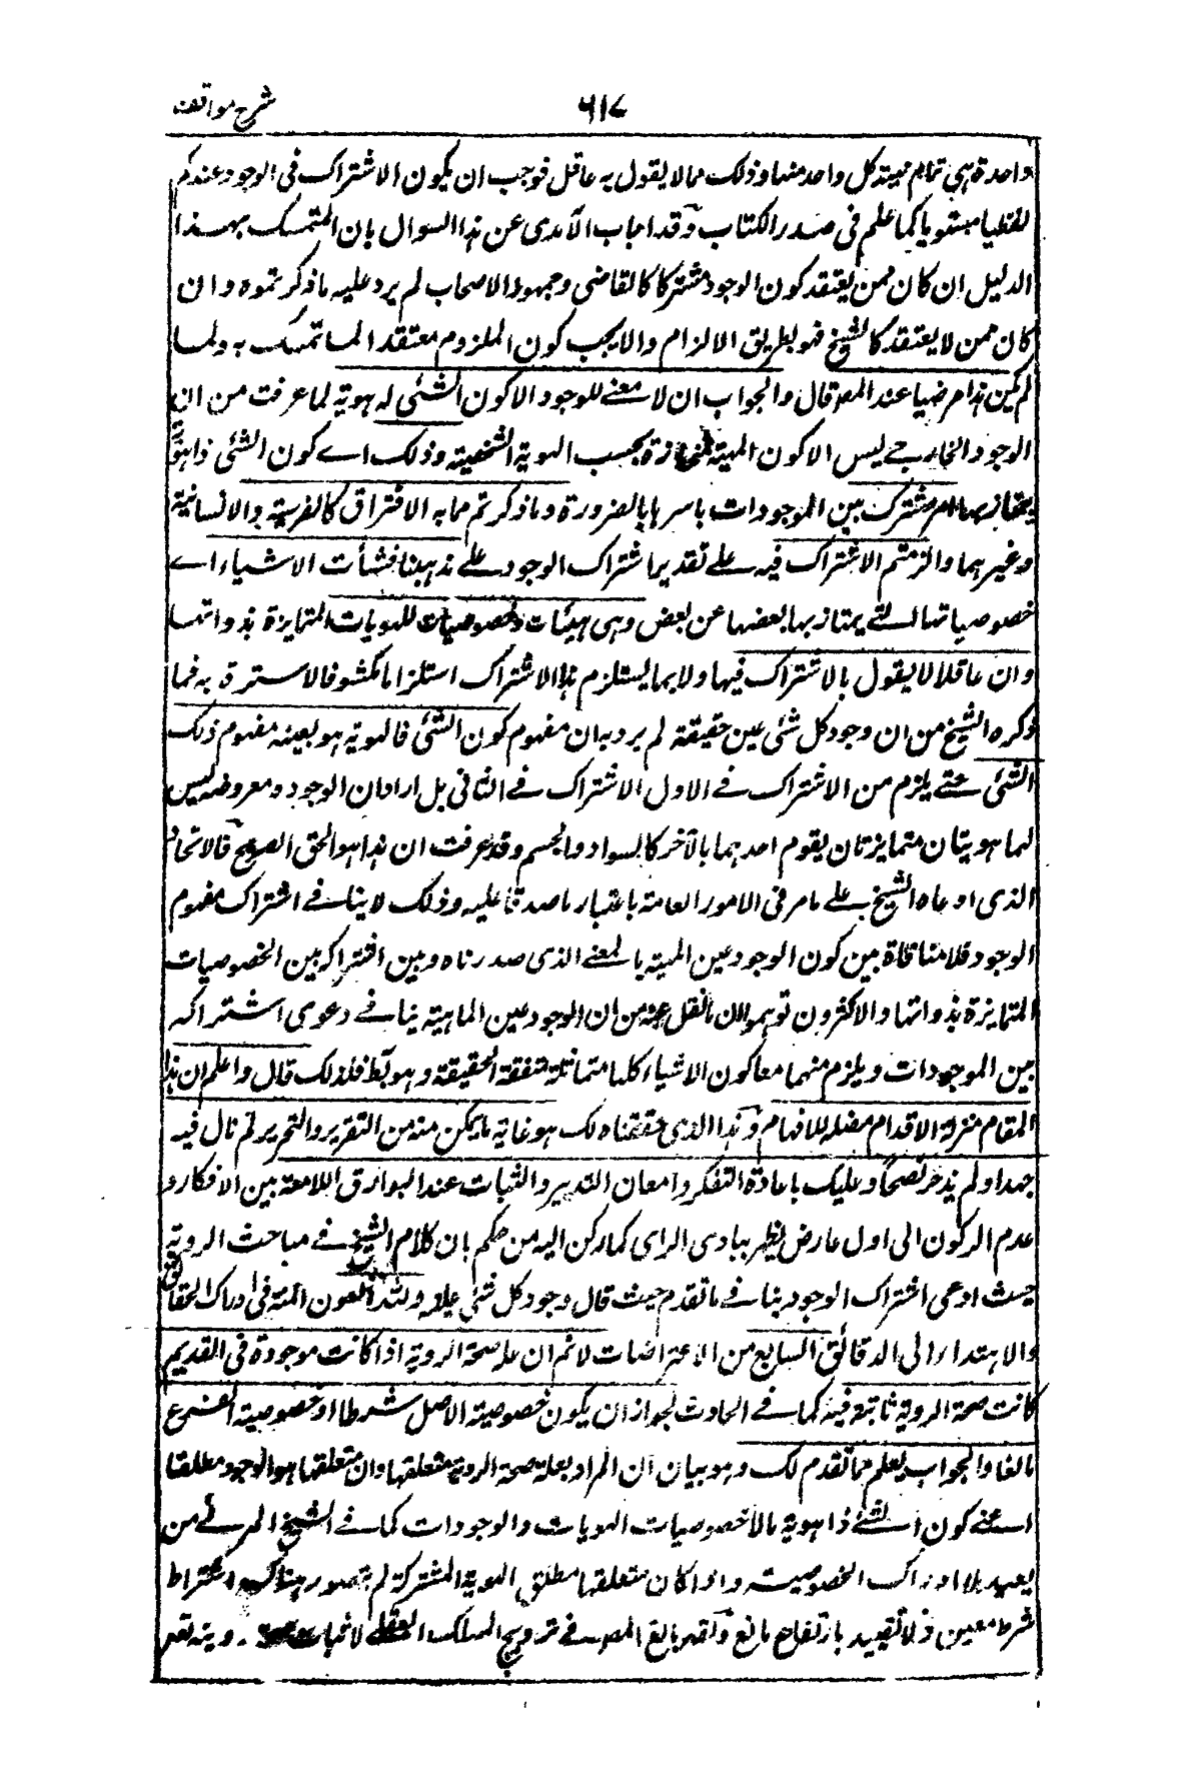 شرح مواقف
٦١٧
واحدة هي تمام مهية كل واحد منها وذلك مما لا يقول به عاقل فوجب ان يكون الاشتراك في الوجود عندكم
لفظيا معنويا كما علم في صدر الكتاب وقد اجاب الآمدى عن هذا السوال بان المتمسك بهذا
الدليل ان كان ممن يعتقد كون الوجود مشتركا كالقاضي وجمهور الاصحاب لم يرد عليه ما ذكرتموه وان
كان ممن لا يعتقد كالشيخ فهو بطريق الالزام ولا يجب كون الملزوم معتقدا لما تمسك به ولما
لم يكن هذا مرضيا عند المصـ قال والجواب ان لا معنى للوجود الا كون الشئ له هوية لما عرفت من ان
الوجود الخارجي ليس الا كون المهية ممتازة بحسب الهوية الشخصية وذلك اے كون الشئ ذا هوية
يمتاز بها امر مشترك بين الموجودات باسرها بالضرورة وما ذكرتم مما به الافتراق كالفرسية والانسانية
وغيرهما والزمتم الاشتراك فيه على تقدير اشتراك الوجود على مذهبنا فشأت الاشياء اے
خصوصياتها التي يمتاز بها بعضها عن بعض وهى هيئات وخصوصيات للهويات المتمايزة بذواتها
وان عاقلا لا يقول بالاشتراك فيها ولا بما يستلزم هذا الاشتراك استلزاما مكشوفا لا سترة به فما
ذكره الشيخ من ان وجود كل شئ عين حقيقته لم يرد به ان مفهوم كون الشئ ذا هوية هو بعينه مفهوم ذلك
الشئ حتى يلزم من الاشتراك في الاول الاشتراك في الثاني بل اراد ان الوجود ومعروضه ليس
لهما هويتان متمايزتان يقوم احدهما بالآخر كالسواد والجسم وقد عرفت ان هذا هو الحق الصريح فالاتحاد
الذى ادعاه الشيخ على ما مر في الامور العامة باعتبار ما صدقا عليه وذلك لا ينافي اشتراك مفهوم
الوجود فلا منافاة بين كون الوجود عين المهية بالمعنى الذى صورناه وبين اشتراكه بين الخصوصيات
المتمايزة بذواتها والاكثرون توهموا ان ما نقل عنه من ان الوجود عين الماهية ينافي دعوى اشتراكه
بين الموجودات ويلزم منهما معا كون الاشياء كلها متماثلة متفقة الحقيقة وهو بط فلذلك قال واعلم ان هذا
المقام مزلة الاقدام مضلة للافهام وهذا الذى حققناه لك هو غاية ما يمكن منه من التقرير والتحرير لم نال فيه
جهدا ولم ندخر نصحا وعليك باعادة التفكر وامعان التدبر والثبات عند البوارق اللامعة بين الافكار و
عدم الركون الى اول عارض يظهر ببادى الراى كما ركن اليه من حكم بان كلام الشيخ في مباحث الروية
حيث ادعى اشتراك الوجود ينافي ما تقدم حيث قال وجود كل شئ عينه ولله العون والمنة في ادراك الحقائق
والاهتداء الى الدقائق السابع من الاعتراضات لا نم ان علة صحة الروية اذا كانت موجودة في القديم
كانت صحة الروية ثابتة فيه كما في الحادث لجواز ان يكون خصوصية الاصل شرطا او خصوصية الفرع
مانعا والجواب يعلم مما تقدم لك وهو بيان ان المراد بعلة صحة الروية متعلقها وان متعلقها هو الوجود مطلقا
اعنى كون الشئ ذا هوية ما لا خصوصيات الهويات والوجودات كما في الشبح المرئي من
بعيد بلا ادراك الخصوصية واذا كان متعلقها مطلق الهوية المشتركة لم يتصور هناك اشتراط
شرط معين ولا تقييد بارتفاع مانع ولقد بالغ المصـ في ترويج المسلك العقلي لاثبات